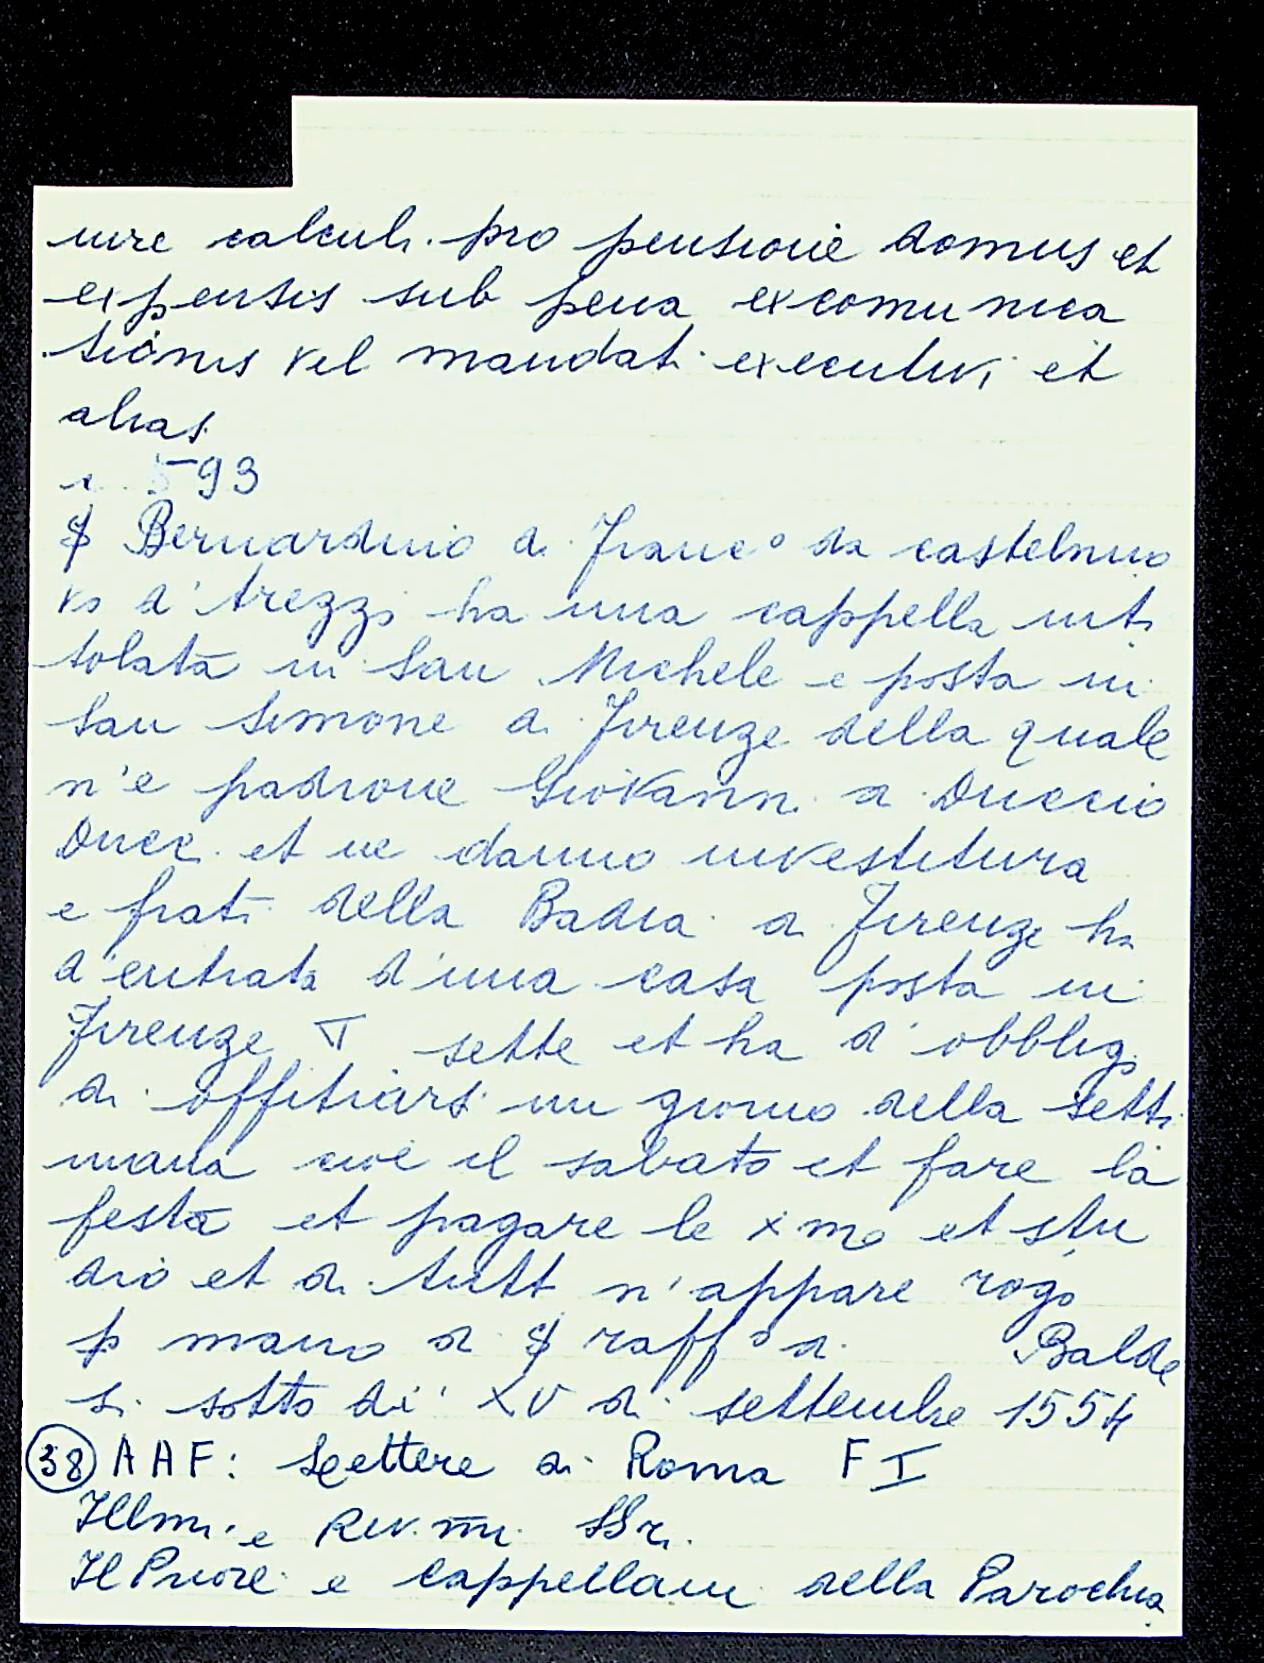 iure calculi pro pensione domus et
expensis sub pena excomunica
tionis vel mandati executivi et
alias
n. 593
Bernardino di Franc° da castelnuo
vo d'Arezzo ha una cappella inti
tolata in San Michele e posta in
San Simone di Firenze della quale
n'è padrone Giovanni di Duccio
Ducci et ne danno investitura
e frati della Badia di Firenze ha
d'entrata d'una casa posta in
Firenze sette et ha d'obbligo
di offitiarsi un giorno della setti
mana cioè il sabato et fare la
festa et pagare le xme et stu
dio et di tutt n'appare rogo
p mano di raff° di Balde
si sotto dì XV di settembre 1554
38 AAF: Lettere di Roma F I
Illmi e Rev.mi SSri.
Il Priore e Cappellani della Parochia